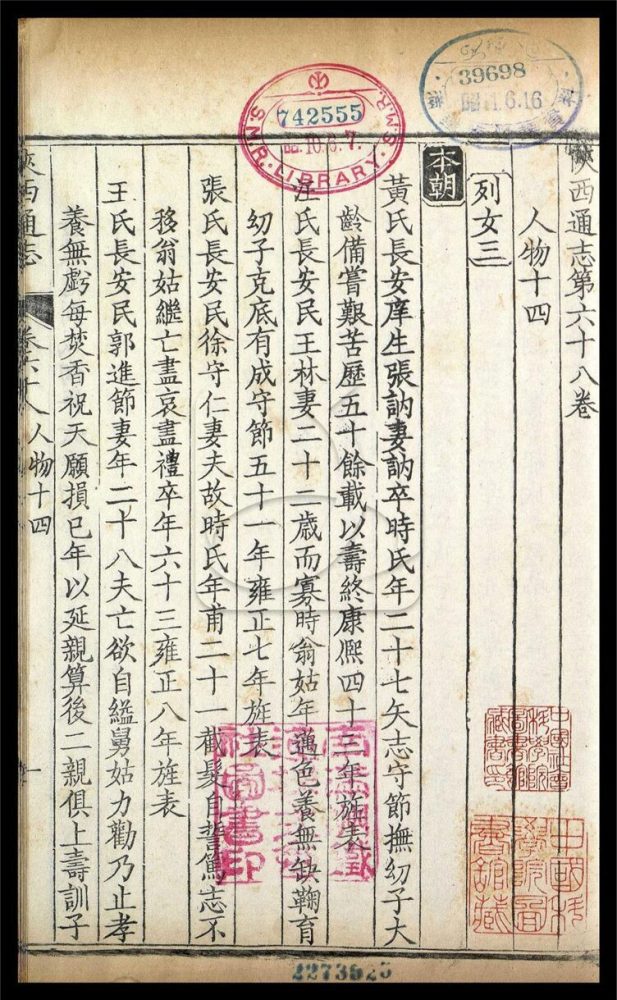 39698
昭11.6.16
S.M.R. LIBRARY
742555
陝西通志第六十八卷
人物十四
列女三
本朝
黃氏長安庠生張訥妻訥卒時氏年二十七矢志守節撫幼子大
齡備嘗艱苦歷五十餘載以壽終康熙四十三年旌表
汪氏長安民王林妻二十二歲而寡時翁姑年邁色養無缺鞠育
幼子克底有成守節五十一年雍正七年旌表
張氏長安民徐守仁妻夫故時氏年甫二十一截髮自誓篤志不
移翁姑繼亡盡哀盡禮卒年六十三雍正八年旌表
王氏長安民郭進節妻年二十八夫亡欲自縊舅姑力勸乃止孝
養無虧每焚香祝天願損已年以延親算後二親俱上壽訓子
陝西通志 卷六十八 人物十四 一
中國科學院圖書館藏